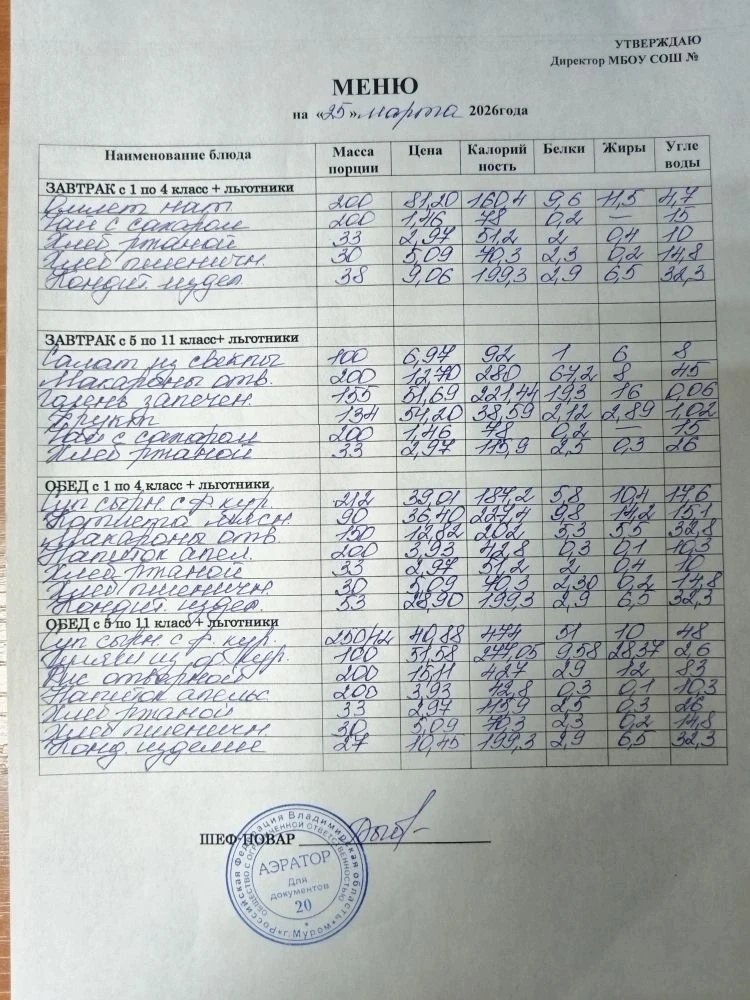 УТВЕРЖДАЮ
Директор МБОУ СОШ №
МЕНЮ
на «25» марта 2026года
Наименование блюда Масса порции Цена Калорий ность Белки Жиры Угле воды
ЗАВТРАК с 1 по 4 класс + льготники
Омлет нат 200 81,20 160,4 9,6 11,5 4,7
Чай с сахаром 200 1,46 78 0,2 — 15
Хлеб ржаной 33 2,97 51,2 2 0,4 10
Хлеб пшеничн. 30 5,09 70,3 2,3 0,2 14,8
Кондит. издел. 38 9,06 199,3 2,9 6,5 32,3
ЗАВТРАК с 5 по 11 класс+ льготники
Салат из свеклы 100 6,97 92 1 6 8
Макароны отв. 200 12,70 280 67,2 8 45
Голень запечен. 155 51,69 221,44 19,3 16 0,06
Фрукт 134 54,20 38,59 2,12 2,89 1,02
Чай с сахаром 200 1,46 78 0,2 — 15
Хлеб ржаной 33 2,97 115,9 2,5 0,3 26
ОБЕД с 1 по 4 класс + льготники
Суп сырн. с ф. кур. 212 39,01 187,2 5,8 10,4 17,6
Котлета мясн. 90 36,40 227,4 9,8 14,2 15,1
Макароны отв 150 12,82 202 5,3 5,5 32,8
Напиток апел. 200 3,93 42,8 0,3 0,1 10,3
Хлеб ржаной 33 2,97 51,2 2 0,4 10
Хлеб пшеничн. 30 5,09 70,3 2,30 0,2 14,8
Кондит. издел 53 28,90 199,3 2,9 6,5 32,3
ОБЕД с 5 по 11 класс + льготники
Суп сырн. с ф. кур. 250/12 40,88 474 51 10 48
из ф. кур. 100 51,58 277,05 9,58 28,37 26
Рис отварной 200 15,11 427 29 12 83
Напиток апельс. 200 3,93 12,8 0,3 0,1 10,3
Хлеб ржаной 33 2,97 115,9 2,5 0,3 26
Хлеб пшеничн 30 5,09 70,3 2,3 0,2 14,8
Конд изделие 27 10,45 199,3 2,9 6,5 32,3
ШЕФ-ПОВАР
Российская Федерация Владимирская область
г. Муром
ОБЩЕСТВО С ОГРАНИЧЕННОЙ ОТВЕТСТВЕННОСТЬЮ
АЭРАТОР
Для
документов
20